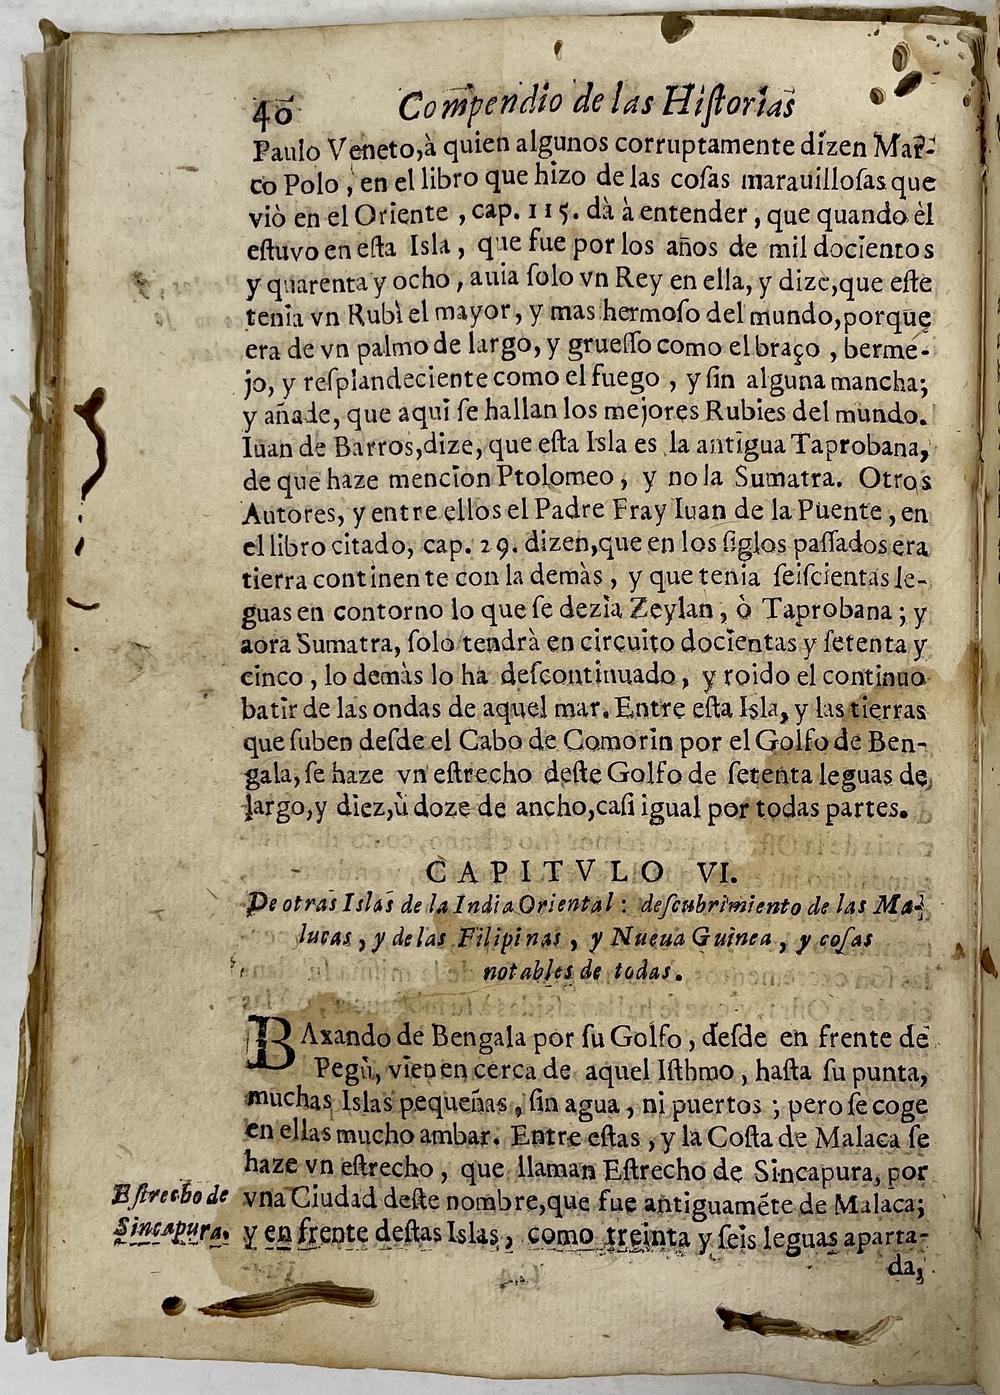 40 Compendio de las Hiſtorias
Paulo Veneto,à quien algunos corruptamente dizen Mar-
co Polo, en el libro que hizo de las coſas marauilloſas que
viò en el Oriente, cap. 115. dà à entender, que quando èl
eſtuvo en eſta Isla, que fue por los años de mil docientos
y quarenta y ocho, auia ſolo vn Rey en ella, y dize,que eſte
tenia vn Rubì el mayor, y mas hermoſo del mundo,porque
era de vn palmo de largo, y grueſſo como el braço, berme-
jo, y reſplandeciente como el fuego, y ſin alguna mancha;
y añade, que aqui ſe hallan los mejores Rubies del mundo.
Iuan de Barros,dize, que eſta Isla es la antigua Taprobana,
de que haze mencion Ptolomeo, y no la Sumatra. Otros
Autores, y entre ellos el Padre Fray Iuan de la Puente, en
el libro citado, cap. 29. dizen,que en los ſiglos paſſados era
tierra continente con la demàs, y que tenia ſeiſcientas le-
guas en contorno lo que ſe dezia Zeylan, ò Taprobana; y
aora Sumatra, ſolo tendrà en circuito docientas y ſetenta y
cinco, lo demàs lo ha deſcontinuado, y roido el continuo
batir de las ondas de aquel mar. Entre eſta Isla, y las tierras
que ſuben deſde el Cabo de Comorin por el Golfo de Ben-
gala, ſe haze vn eſtrecho deſte Golfo de ſetenta leguas de
largo,y diez,ù doze de ancho,caſi igual por todas partes.
CAPITVLO VI.
De otras Islas de la India Oriental: deſcubrimiento de las Ma-
lucas, y de las Filipinas, y Nueua Guinea, y coſas
notables de todas.
BAxando de Bengala por ſu Golfo, deſde en frente de
Pegù, vienen cerca de aquel Iſthmo, haſta ſu punta,
muchas Islas pequeñas, ſin agua, ni puertos; pero ſe coge
en ellas mucho ambar. Entre eſtas, y la Coſta de Malaca ſe
haze vn eſtrecho, que llaman Eſtrecho de Sincapura, por
vna Ciudad deſte nombre,que fue antiguamēte de Malaca;
y en frente deſtas Islas, como treinta y ſeis leguas aparta-
da,
Eſtrecho de
Sincapura.